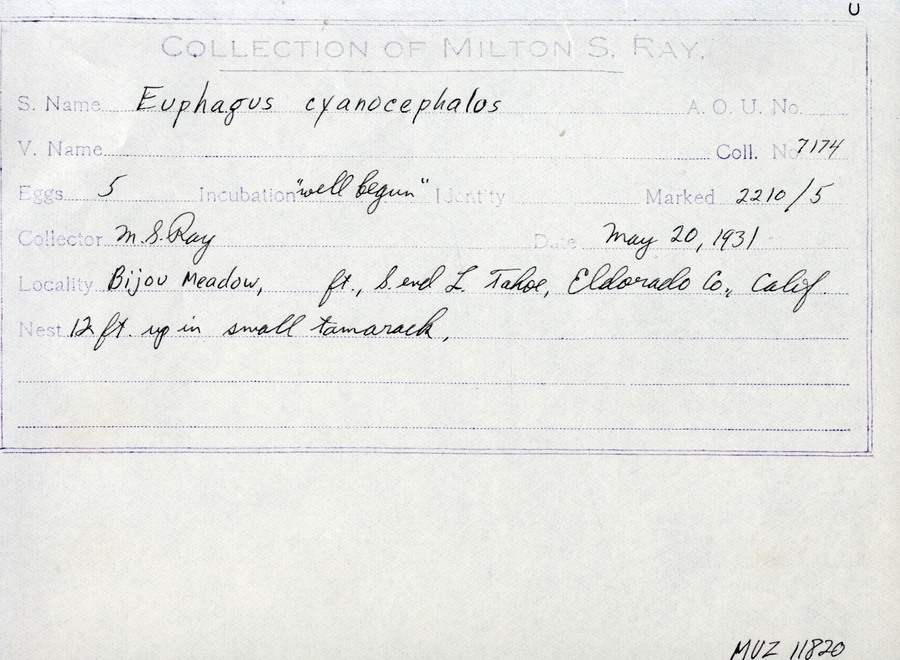 U
COLLECTION OF MILTON S. RAY.
S. Name Euphagus cyanocephalos A. O. U. No.
V. Name Coll. No 7174
Eggs 5 Incubation "well begun" Identity Marked 2210/5
Collector M.S.Ray Date May 20, 1931
Locality Bijou Meadow, ft., S. end L. Tahoe, Eldorado Co., Calif.
Nest 12 ft. up in small tamarack,
MVZ 11820